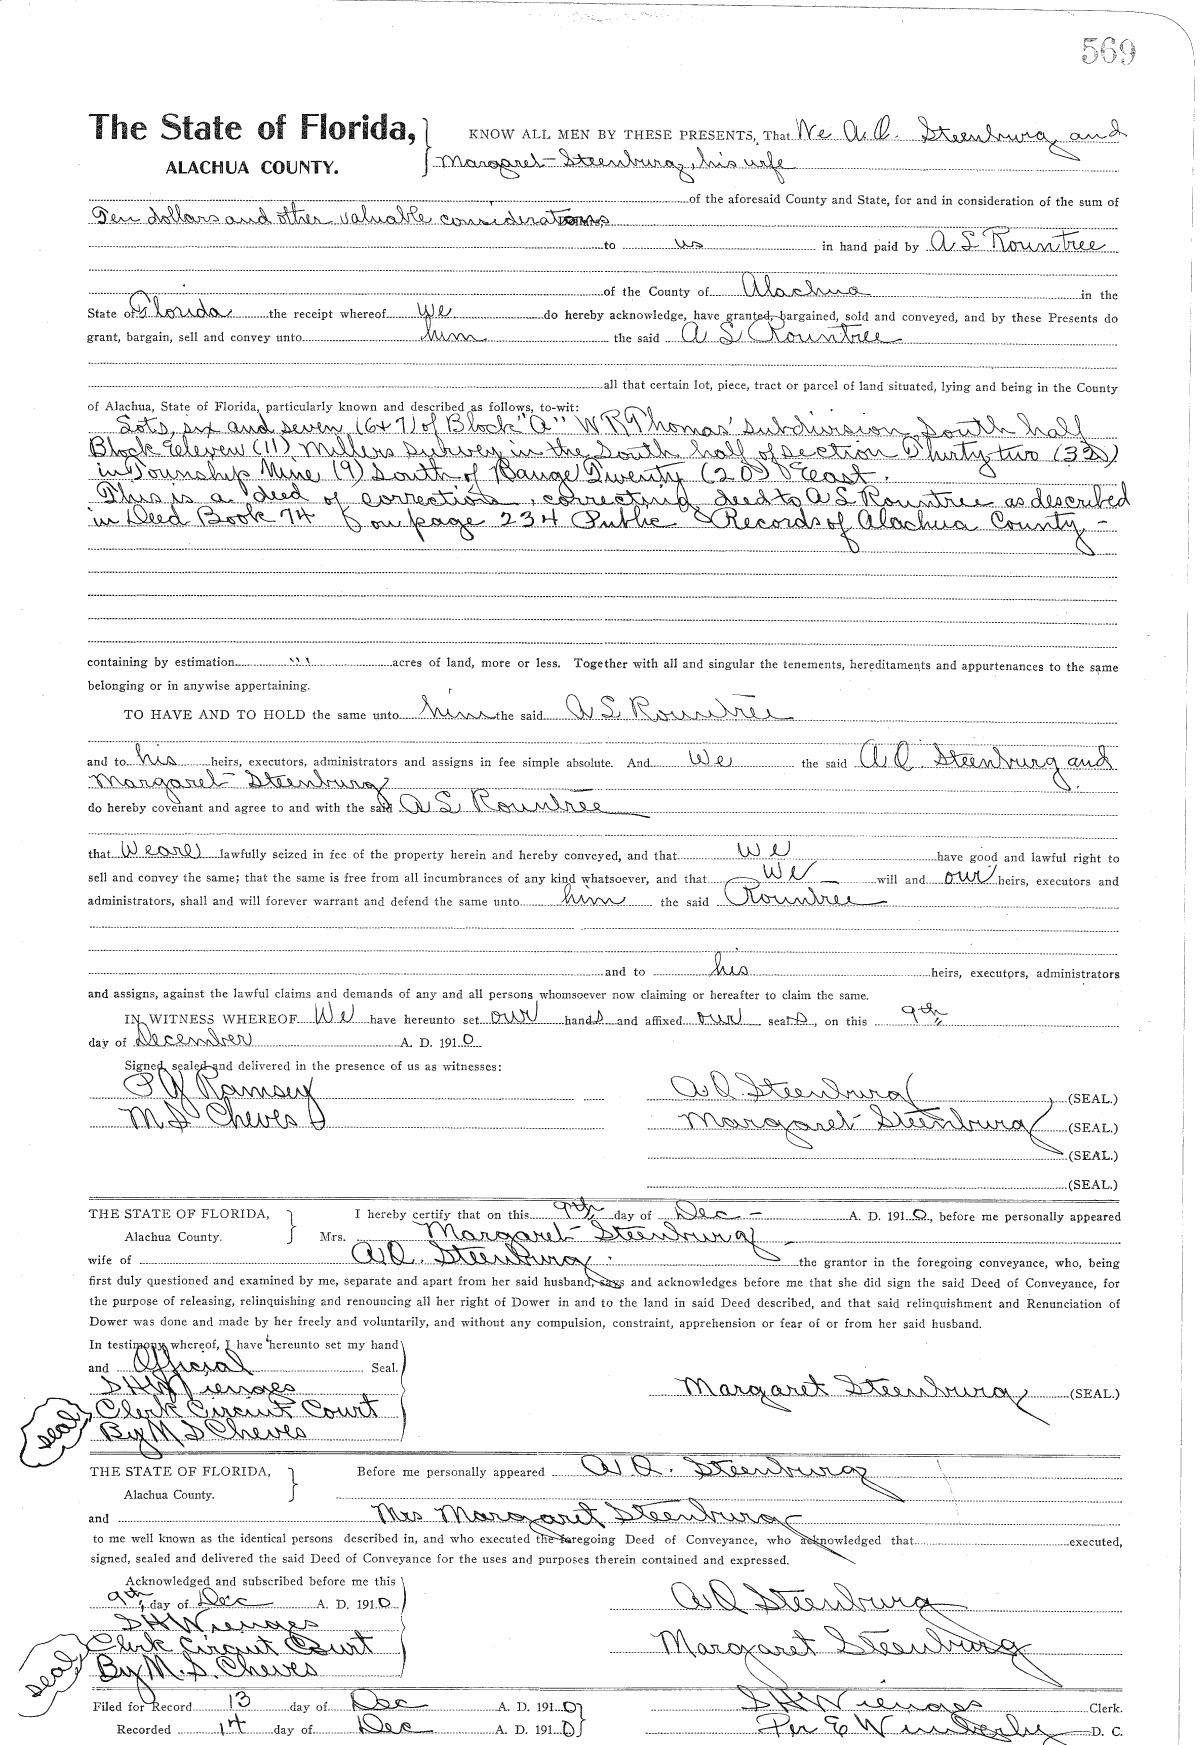 569
The State of Florida, KNOW ALL MEN BY THESE PRESENTS, That We A. D. Steenburg and
ALACHUA COUNTY. Margaret Steenburg, his wife
of the aforesaid County and State, for and in consideration of the sum of
Ten dollars and other valuable considerations
to us in hand paid by A S Rountree
of the County of Alachua in the
State of Florida the receipt whereof we do hereby acknowledge, have granted, bargained, sold and conveyed, and by these Presents do
grant, bargain, sell and convey unto him the said A S Rountree
all that certain lot, piece, tract or parcel of land situated, lying and being in the County
of Alachua, State of Florida, particularly known and described as follows, to-wit:
Lots, six and seven (6+7) of Block "A" W R Thomas' subdivision South half
Block Eleven (11) Millers Survey in the South half of section Thirty two (32)
in Township Nine (9) South of Range Twenty (20) East.
This is a deed of correction, correcting deed to A S Rountree as described
in Deed Book 74 on page 234 Public Records of Alachua County –
containing by estimation """ acres of land, more or less. Together with all and singular the tenements, hereditaments and appurtenances to the same
belonging or in anywise appertaining.
TO HAVE AND TO HOLD the same unto him the said A S Rountree
and to his heirs, executors, administrators and assigns in fee simple absolute. And We the said A D Steenburg and
Margaret Steenburg
do hereby covenant and agree to and with the said A S Rountree
that We are lawfully seized in fee of the property herein and hereby conveyed, and that we have good and lawful right to
sell and convey the same; that the same is free from all incumbrances of any kind whatsoever, and that We will and our heirs, executors and
administrators, shall and will forever warrant and defend the same unto him the said Rountree
and to his heirs, executors, administrators
and assigns, against the lawful claims and demands of any and all persons whomsoever now claiming or hereafter to claim the same.
IN WITNESS WHEREOF We have hereunto set our hands and affixed our seals, on this 9th
day of December A. D. 1910
Signed, sealed and delivered in the presence of us as witnesses:
Ramsey A D Steenburg (SEAL.)
M S Cheves Margaret Steenburg (SEAL.)
(SEAL.)
(SEAL.)
THE STATE OF FLORIDA, I hereby certify that on this 9th day of Dec – A. D. 1910, before me personally appeared
Alachua County. Mrs. Margaret Steenburg
wife of A D. Steenburg the grantor in the foregoing conveyance, who, being
first duly questioned and examined by me, separate and apart from her said husband, says and acknowledges before me that she did sign the said Deed of Conveyance, for
the purpose of releasing, relinquishing and renouncing all her right of Dower in and to the land in said Deed described, and that said relinquishment and Renunciation of
Dower was done and made by her freely and voluntarily, and without any compulsion, constraint, apprehension or fear of or from her said husband.
In testimony whereof, I have hereunto set my hand
and Official Seal.
S H Wienges Margaret Steenburg (SEAL.)
seal Clerk Circuit Court
By M S Cheves
THE STATE OF FLORIDA, Before me personally appeared A D. Steenburg
Alachua County.
and Mrs Margaret Steenburg
to me well known as the identical persons described in, and who executed the foregoing Deed of Conveyance, who acknowledged that executed,
signed, sealed and delivered the said Deed of Conveyance for the uses and purposes therein contained and expressed.
Acknowledged and subscribed before me this
9th day of Dec A. D. 1910 A D Steenburg
S H Wienges
seal Clerk Circuit Court Margaret Steenburg
By M. S. Cheves
Filed for Record 13 day of Dec A. D. 1910 S H Wienges Clerk.
Recorded 14 day of Dec A. D. 1910 Per E Wimberly D. C.